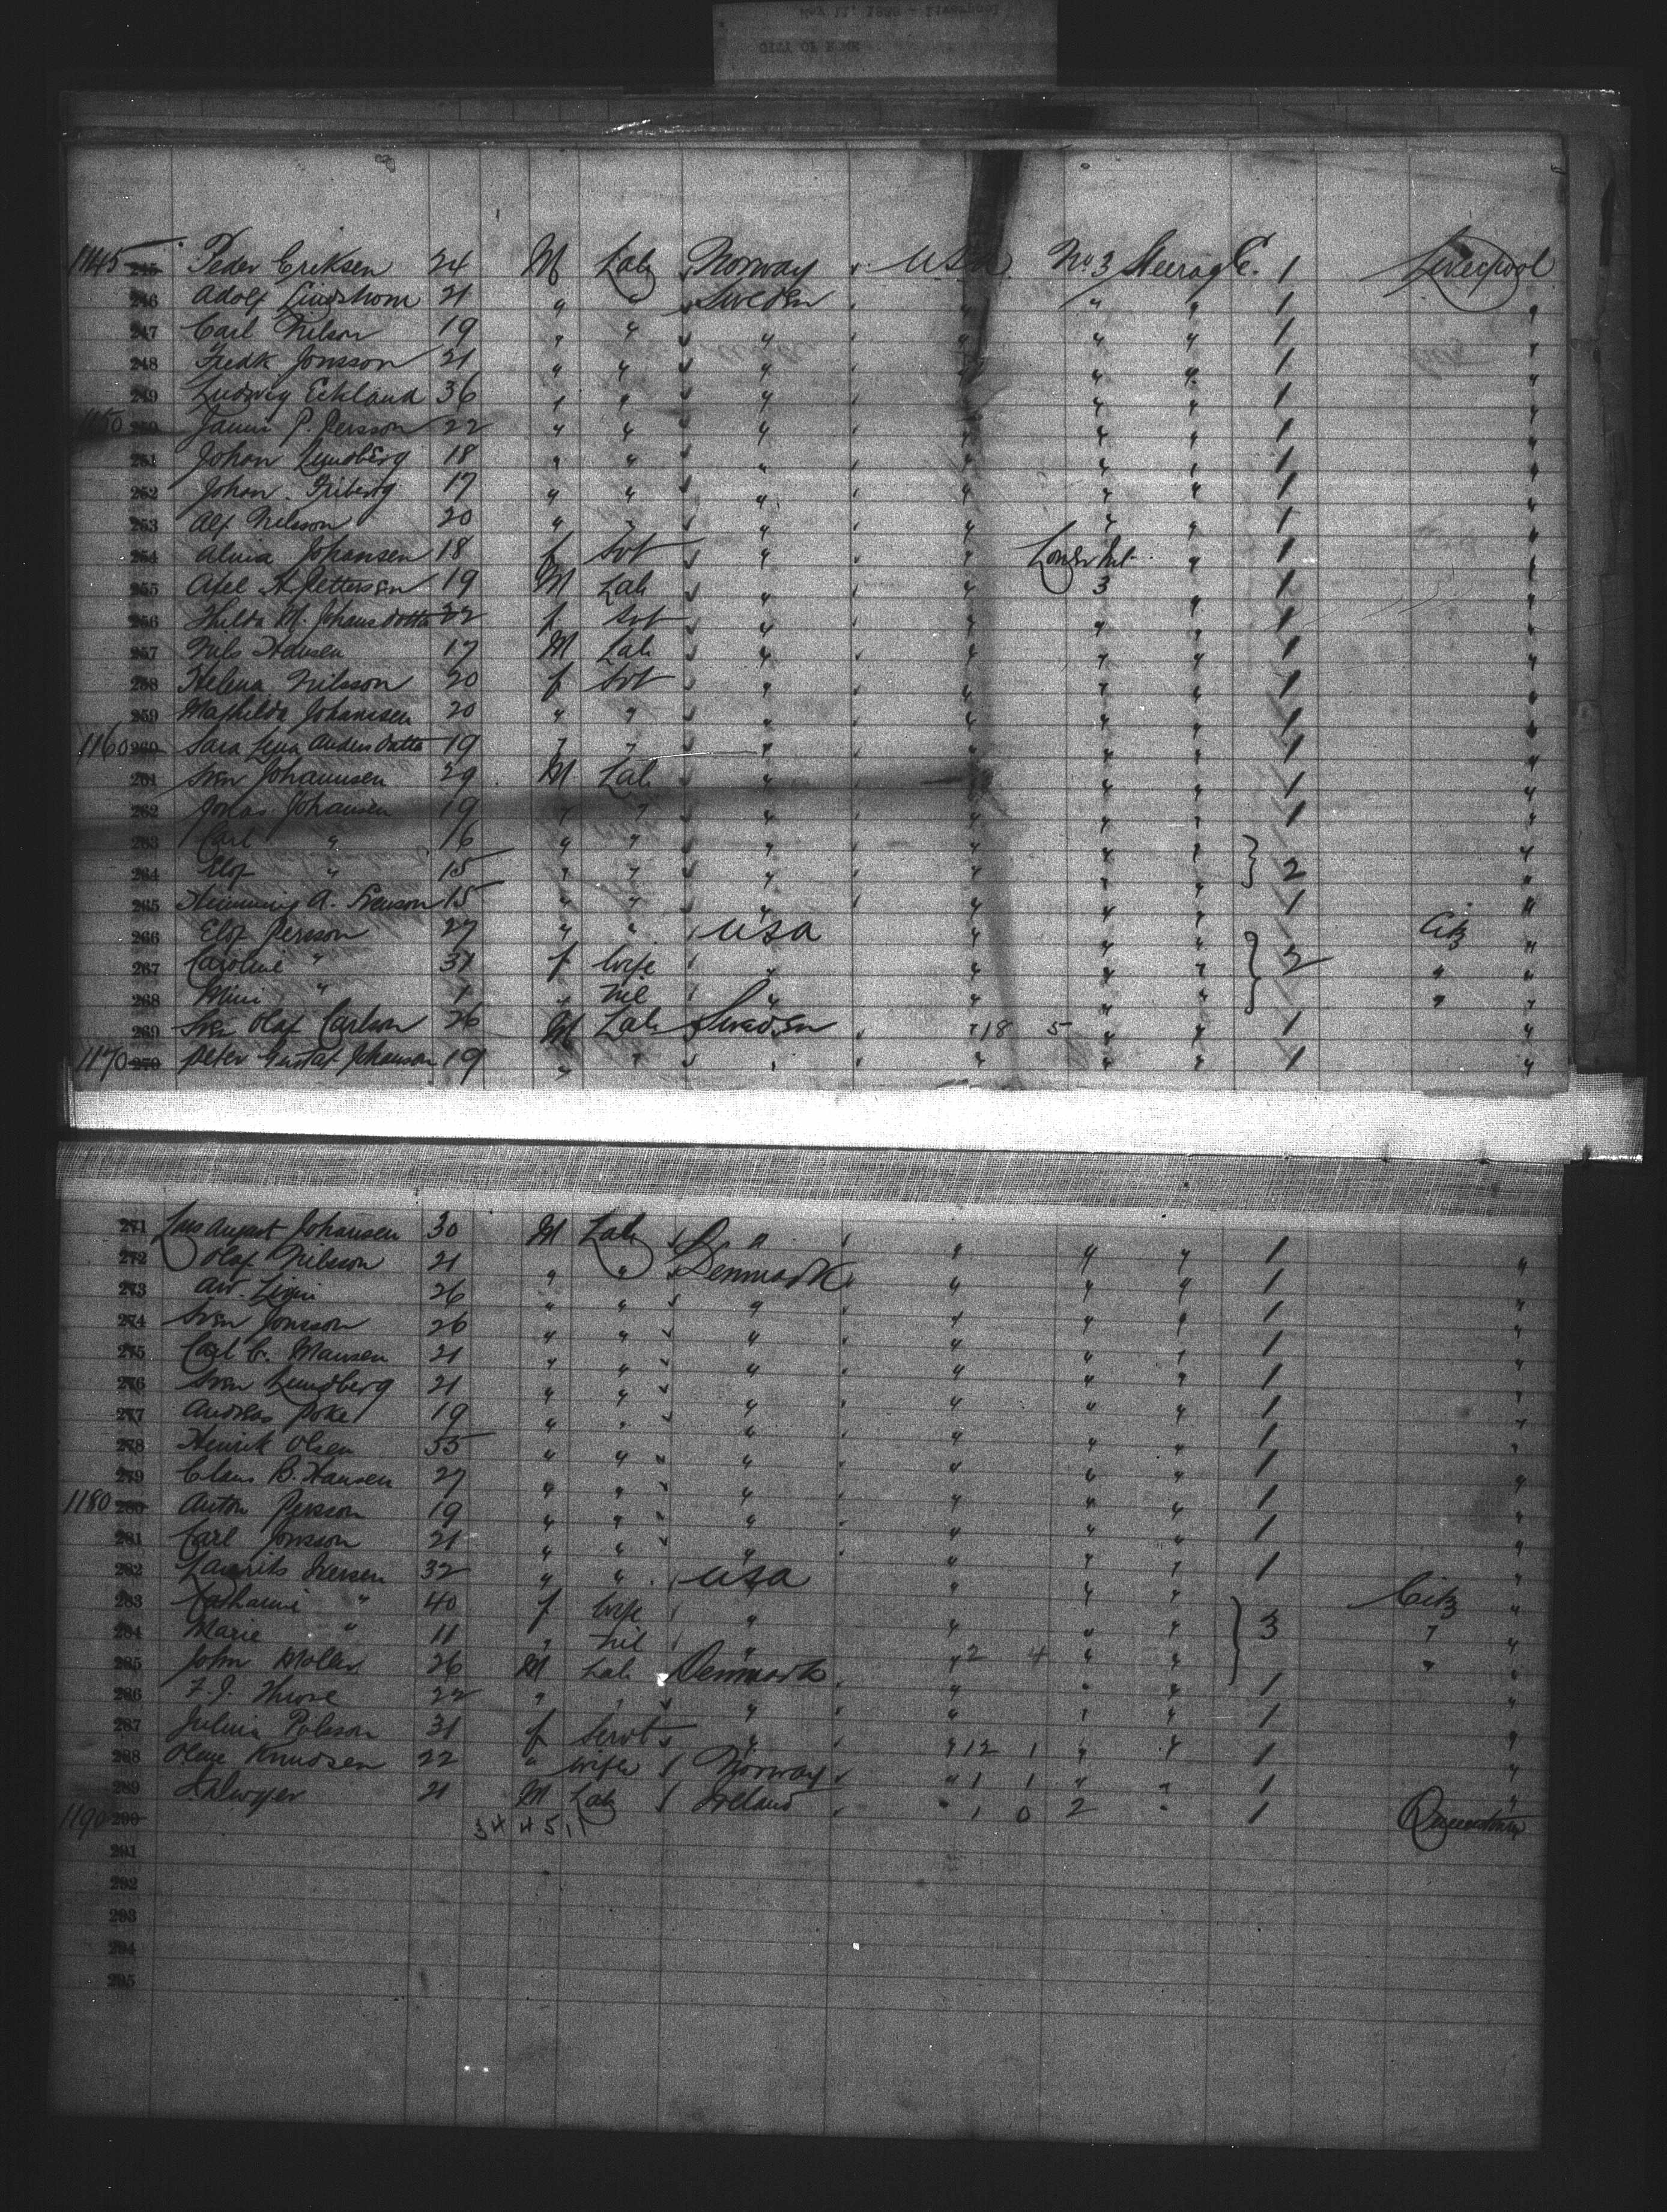 1145 245 Peder Eriksen 24 M Lab Norway USA No 3 Steerage. 1 Liverpool
246 Adolf Lindstrom 21 " " Sweden " " " 1 "
247 Carl Nilson 19 " " " " " " 1 "
248 Fredk Jonsson 21 " " " " " " 1 "
249 Ludwig Ecklund 36 " " " " " " 1 "
1150 250 P. Persson 22 " " " " " " 1 "
251 Johan Lundberg 18 " " " " " " 1 "
252 Johan Friberg 17 " " " " " " 1 "
253 Alf Nilsson 20 " " " " " " 1 "
254 Johansen 18 f Svt " " " 1 "
255 Axel A Petterson 19 M Lab " " 3 " 1 "
256 Hilda M. Johansdotter 22 f Svt " " " " 1 "
257 Nils Hansen 17 M Lab " " " " 1 "
258 Helena Nilsson 20 f Svt " " " " 1 "
259 Mathilda Johannsen 20 " " " " " " 1 "
1160 260 Sara Lena Andersdotter 19 " " " " " " 1 "
261 Sven Johannsen 29 M Lab " " " " 1 "
262 Jonas Johansen 19 " " " " " " 1 "
263 Carl " 16 " " " " " " "
264 Elof " 15 " " " " " " 2 "
265 Henning A. Svenson 15 " " " " " " 1 "
266 Elof Persson 27 " " USA " " " Citz "
267 Caroline " 31 f Wife " " " " 3 " "
268 Mini " 1 " nil " " " " " "
269 Sven Olaf Carlson 26 M Lab Sweden " 18 5 " " 1 "
1170 270 Peter Gustaf Johanson 19 " " " " " " 1 "
271 August Johansen 30 M Lab " " " " 1 "
272 Olaf Nilsson 21 " " Denmark " " " 1 "
273 26 " " " " " " 1 "
274 Sven Jonsson 26 " " " " " " 1 "
275 Carl C. Mansen 21 " " " " " " 1 "
276 Sven Lundberg 21 " " " " " " 1 "
277 Andreas Poke 19 " " " " " " 1 "
278 Henrik Olsen 35 " " " " " " 1 "
279 Claus B. Hansen 27 " " " " " " 1 "
1180 280 Anton Persson 19 " " " " " " 1 "
281 Carl Jonsson 21 " " " " " " 1 "
282 Laurits Iversen 32 " " USA " " " Citz "
283 Catharine " 40 f Wife " " " " 3 " "
284 Marie " 11 " nil " " 2 4 " " " "
285 John Moller 26 M Lab Denmark " " " 1 "
286 F. J. 22 " " " " " " 1 "
287 Polsson 31 f Servt " " 12 1 " " 1 "
288 Knudsen 22 " wife Norway " 1 1 " " 1 "
289 21 M Lab Ireland " 1 0 2 " 1 Queenstown
1190 290
34 4 5 11
291
292
293
294
295